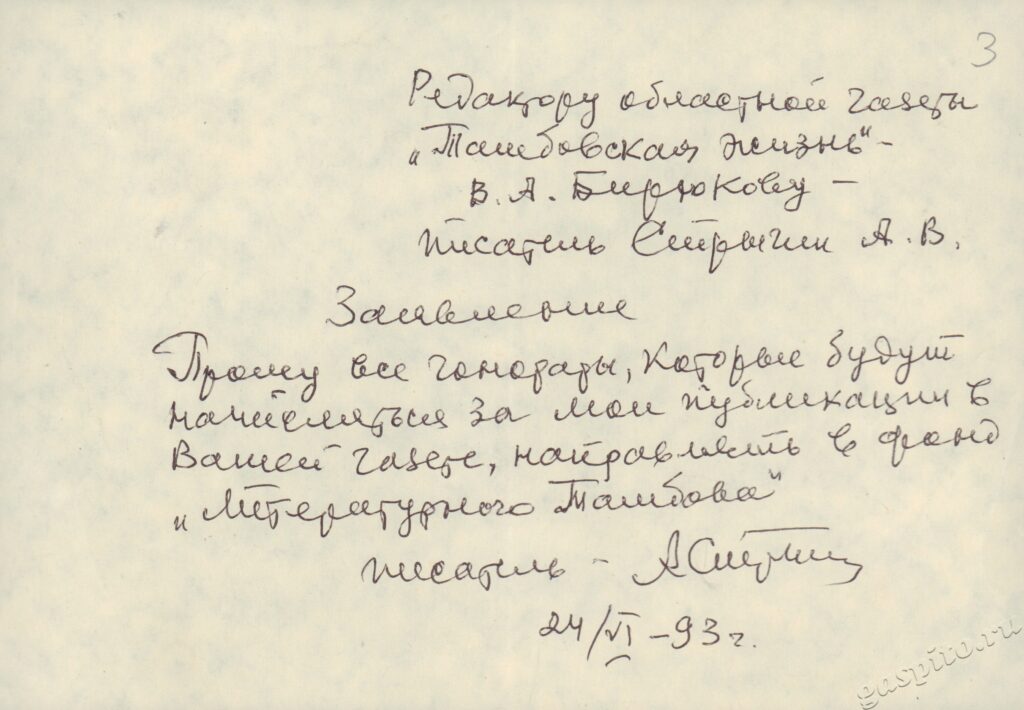 3
Редактору областной газеты
„Тамбовская жизнь“ –
В. А. Бирюкову –
писатель Стрыгин А. В.
Заявление
Прошу все гонорары, которые будут
начисляться за мои публикации в
Вашей газете, направлять в фонд
„Литературного Тамбова“
писатель – АСтрыгин
24/VI – 93 г.
gaspito.ru